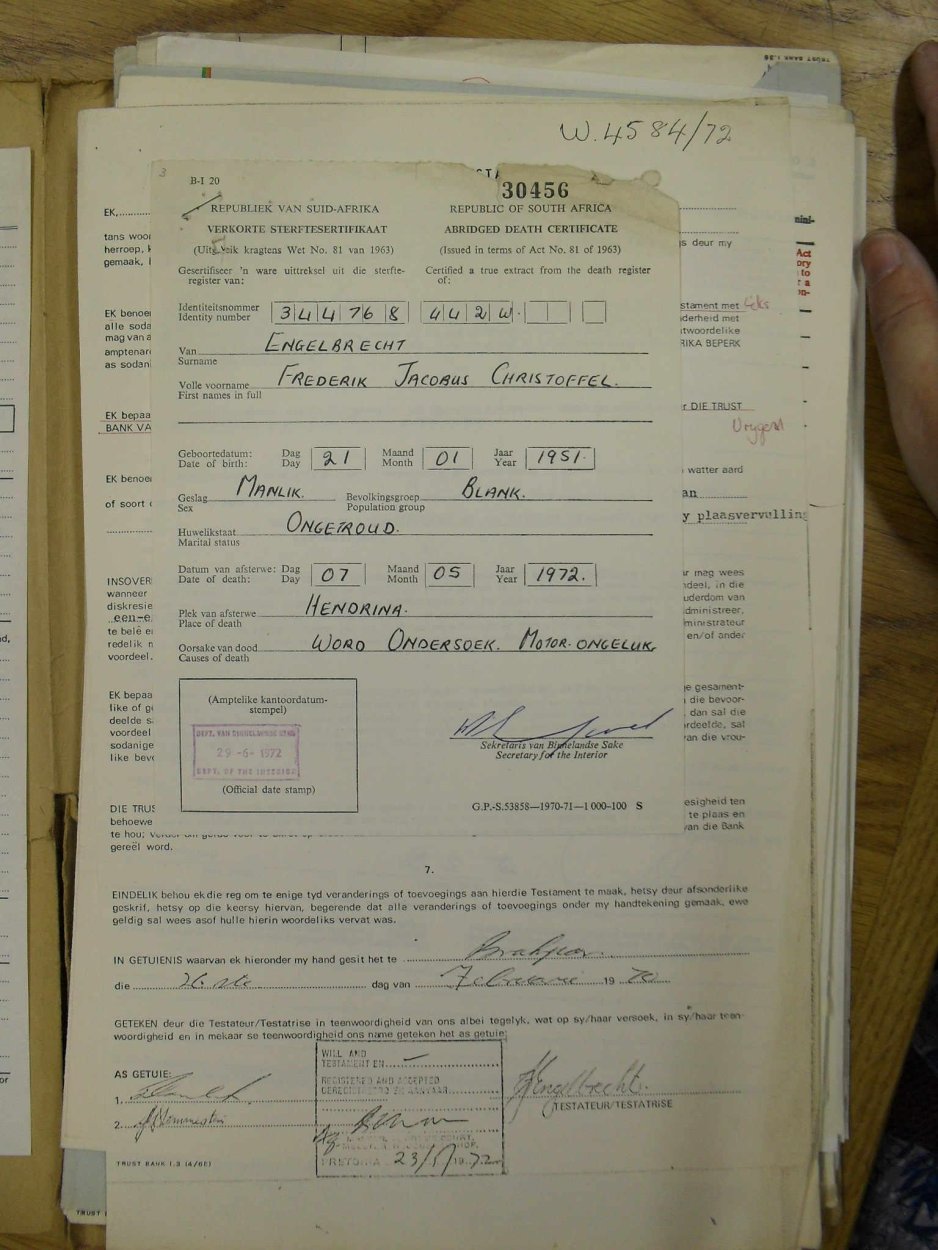 W.4584/72
30456
B-I 20
REPUBLIEK VAN SUID-AFRIKA
REPUBLIC OF SOUTH AFRICA
VERKORTE STERFTESERTIFIKAAT
ABRIDGED DEATH CERTIFICATE
kragtens Wet No. 81 van 1963)
(Issued in terms of Act No. 81 of 1963)
Gesertifiseer 'n ware uittreksel uit die sterfte-
register van:
Certified a true extract from the death register
of:
Identiteitsnommer
Identity number
344768 442W.
Van ENGELBRECHT
Surname
Volle voorname FREDERIK JACOBUS CHRISTOFFEL.
First names in full
Geboortedatum: Dag 21 Maand 01 Jaar 1951.
Date of birth: Day Month Year
Geslag MANLIK. Bevolkingsgroep BLANK.
Sex Population group
Huwelikstaat ONGETROUD.
Marital status
Datum van afsterwe: Dag 07 Maand 05 Jaar 1972.
Date of death: Day Month Year
Plek van afsterwe HENDRINA.
Place of death
Oorsake van dood WORD ONDERSOEK. MOTOR-ONGELUK.
Causes of death
(Amptelike kantoordatum-
stempel)
29-6-1972
DEPT. OF THE INTERIOR
(Official date stamp)
Sekretaris van Binnelandse Sake
Secretary for the Interior
G.P.-S.53858—1970-71—1 000-100 S
EK,
tans woor
herroep,
gemaak,
s deur my
EK benoe
alle soda
mag van a
amptenar
as sodan
stament met
derheid met
twoordelike
RIKA BEPERK
EK bepaa
BANK VA
r DIE TRUST
EK benoe
watter aard
of soort
an
y plaasvervulling
INSOVER
wanneer
diskresie
een-e
te belê e
redelik n
voordeel.
ar mag wees
ndeel, in die
uderdom van
dministreer,
ministrateur
en/of ander
EK bepaa
like of g
deelde s
voordeel
sodanige
like bev
e gesament-
die bevoor-
dan sal die
rdeelde, sal
an die vrou-
DIE TRUS
behoewe
te hou;
gereël word.
esigheid ten
te plaas en
van die Bank
7.
EINDELIK behou ek die reg om te enige tyd veranderings of toevoegings aan hierdie Testament te maak, hetsy deur afsonderlike
geskrif, hetsy op die keersy hiervan, begerende dat alle veranderings of toevoegings onder my handtekening gemaak, ewe
geldig sal wees asof hulle hierin woordeliks vervat was.
IN GETUIENIS waarvan ek hieronder my hand gesit het te Brakpan
die dag van Februarie 19 70
GETEKEN deur die Testateur/Testatrise in teenwoordigheid van ons albei tegelyk, wat op sy/haar versoek, in sy/haar teen-
woordigheid en in mekaar se teenwoordigheid ons name geteken het as getuie:
AS GETUIE:
1.
2.
WILL AND
TESTAMENT EN
REGISTERED AND ACCEPTED
GEREGISTREER EN AANVAAR
PRETORIA 1972
Engelbrecht.
TESTATEUR/TESTATRISE
TRUST BANK 1.3 (4/68)